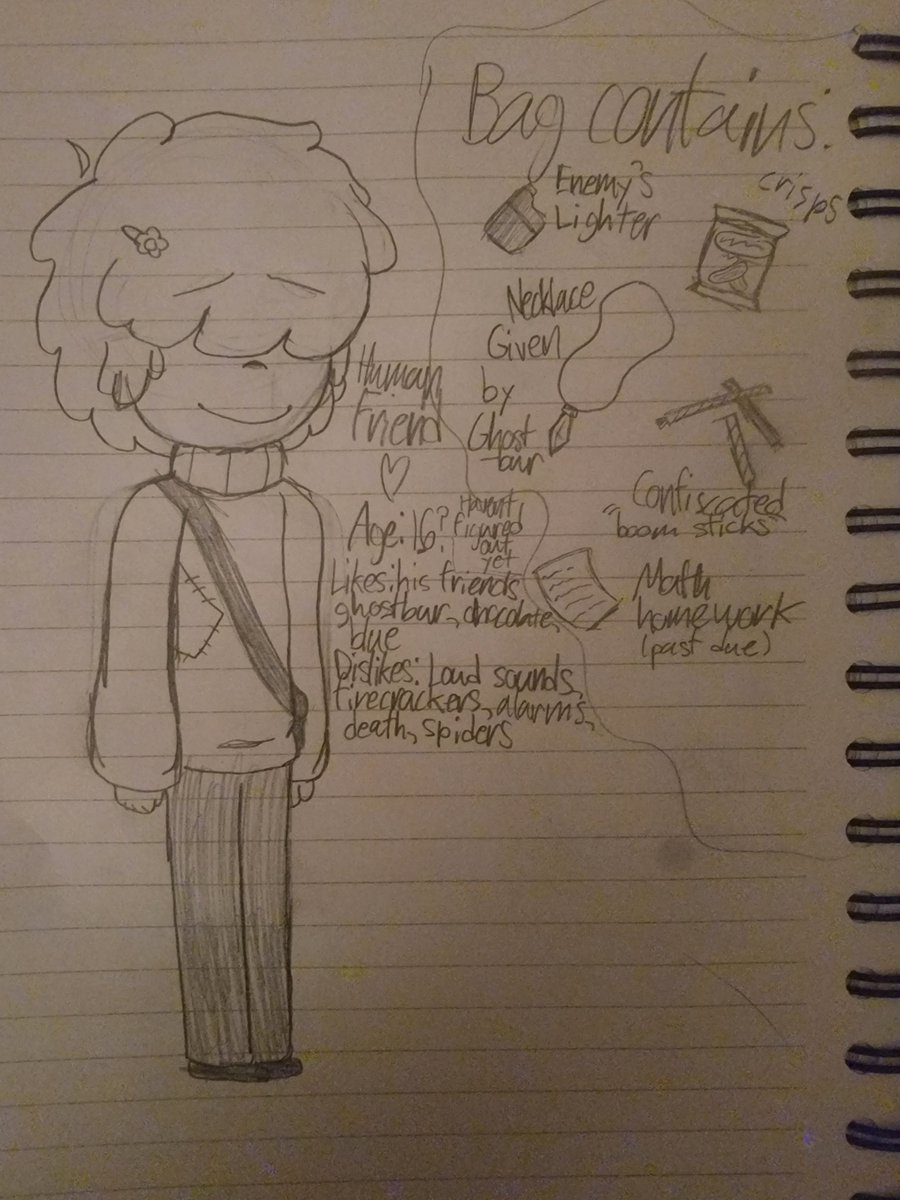 Bag contains:
Enemy's
Lighter
crisps
Necklace
Given
by
Ghost
bur
"Confiscated
boom sticks"
Math
homework
(past due)
Human
Friend
♡
Age: 16?
Haven't
figured
out
yet
Likes: his friends,
ghostbur, chocolate,
blue
Dislikes: Loud sounds,
firecrackers, alarms,
death, spiders